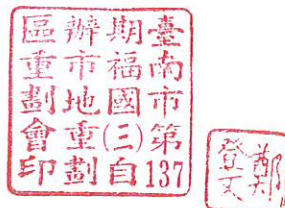 臺南市第137
期福國(三)自
辦市地重劃
區重劃會印
鄭
登文